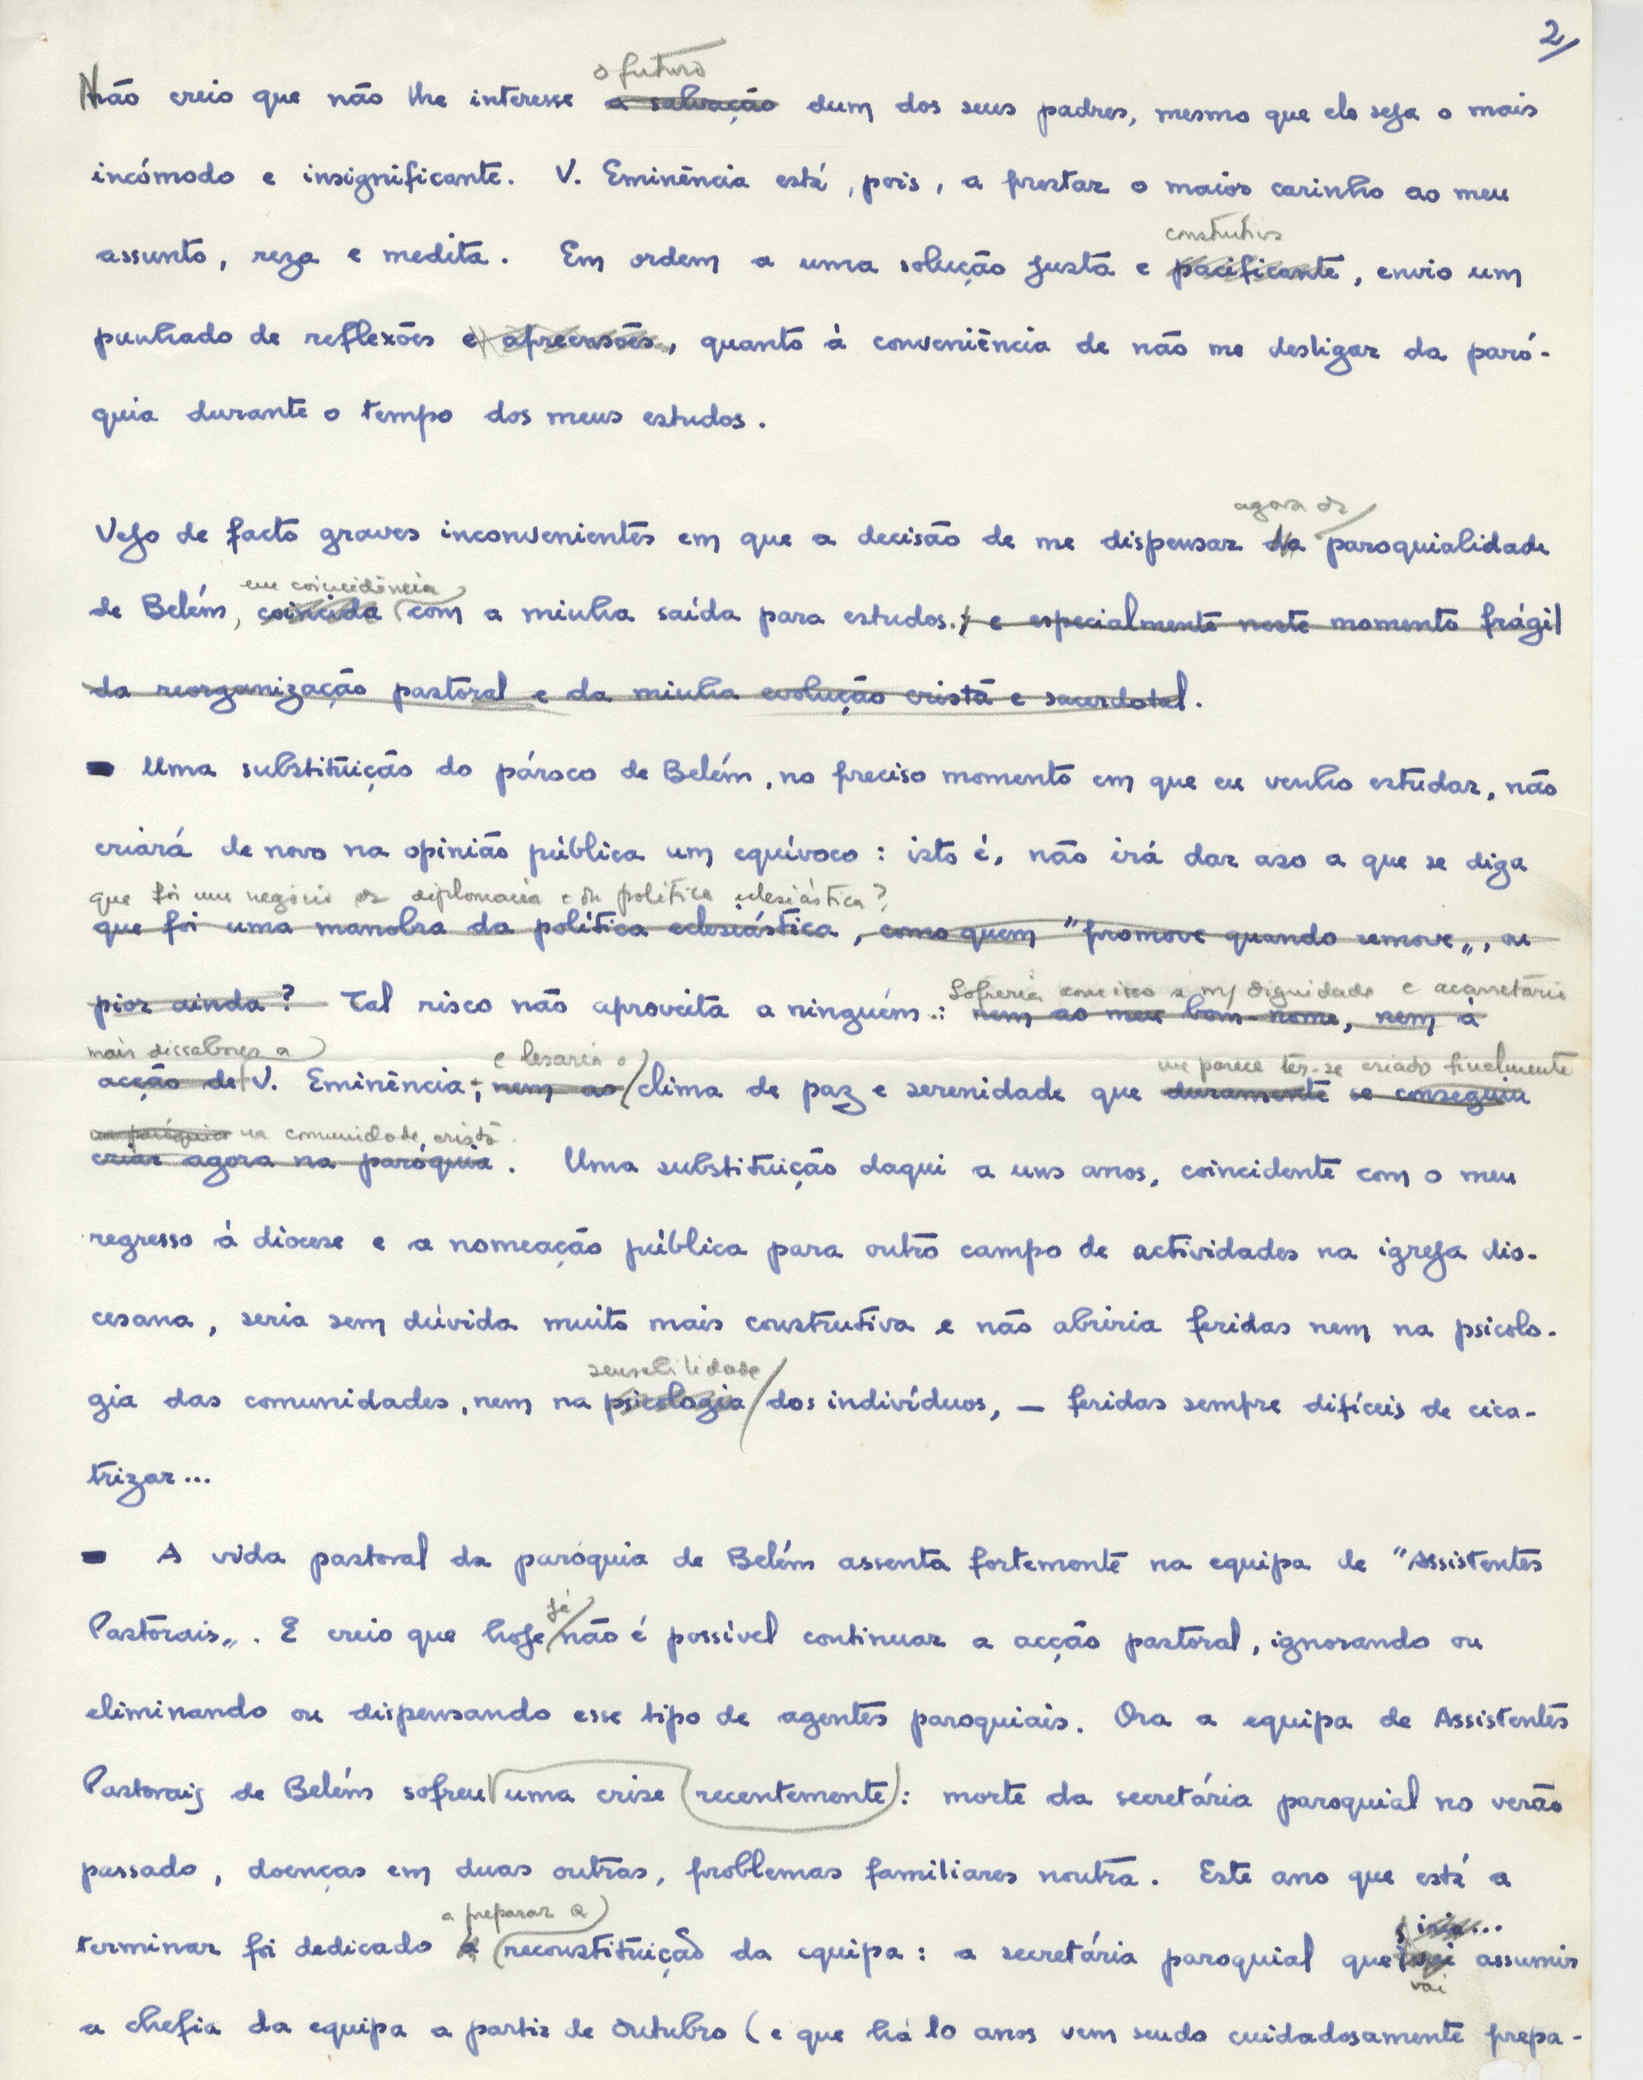 2/
o futuro
Não creio que não lhe interesse a salvação dum dos seus padres, mesmo que ele seja o mais
incómodo e insignificante. V. Eminência está, pois, a prestar o maior carinho ao meu
construtiva
assunto, reza e medita. Em ordem a uma solução justa e pacificante, envio um
punhado de reflexões e apreensões, quanto à conveniência de não me desligar da paró-
quia durante o tempo dos meus estudos.
agora da
Vejo de facto graves inconvenientes em que a decisão de me dispensar da paroquialidade
em coincidência
de Belém, coincida com a minha saída para estudos., e especialmente neste momento frágil
da reorganização pastoral e da minha evolução cristã e sacerdotal.
- Uma substituição do pároco de Belém, no preciso momento em que eu venho estudar, não
criará de novo na opinião pública um equívoco: isto é, não irá dar azo a que se diga
que foi um negócio de diplomacia e de política eclesiástica?
que foi uma manobra da política eclesiástica, como quem "promove quando remove", ou
Sofreria com isso a m/ dignidade e acarretaria
pior ainda? Tal risco não aproveita a ninguém.: nem ao meu bom-nome, nem à
mais dissabores a e lesaria o me parece ter-se criado finalmente
acção de V. Eminência, nem ao clima de paz e serenidade que duramente se conseguiu
na paróquia na comunidade cristã.
criar agora na paróquia. Uma substituição daqui a uns anos, coincidente com o meu
regresso à diocese e a nomeação pública para outro campo de actividades na igreja dio-
cesana, seria sem dúvida muito mais construtiva e não abriria feridas nem na psicolo-
sensibilidade
gia das comunidades, nem na psicologia dos indivíduos, — feridas sempre difíceis de cica-
trizar...
- A vida pastoral da paróquia de Belém assenta fortemente na equipa de "Assistentes
já
Pastorais". E creio que hoje não é possível continuar a acção pastoral, ignorando ou
eliminando ou dispensando esse tipo de agentes paroquiais. Ora a equipa de Assistentes
Pastorais de Belém sofreu uma crise recentemente: morte da secretária paroquial no verão
passado, doenças em duas outras, problemas familiares noutra. Este ano que está a
a preparar a iria...
terminar foi dedicado à reconstituição da equipa: a secretária paroquial que vai assumir
vai
a chefia da equipa a partir de Outubro (e que há 10 anos vem sendo cuidadosamente prepa-